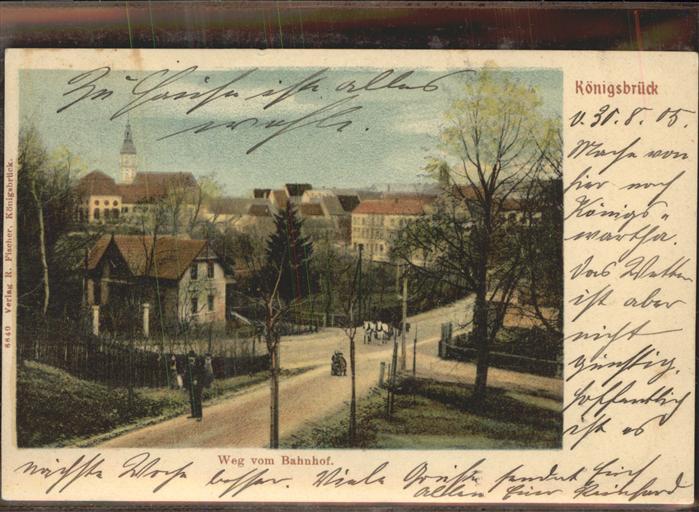 Zu Hause ist alles
wohl.
Königsbrück
d. 30. 8. 05.
Mache von
hier nach
Königs„
wartha.
Das Wetter
ist aber
nicht
günstig,
hoffentlich
ist es
nächste Woche besser. Viele Grüße sendet Euch
allen Euer Reinhard
Weg vom Bahnhof.
6649 Verlag R. Fischer, Königsbrück.